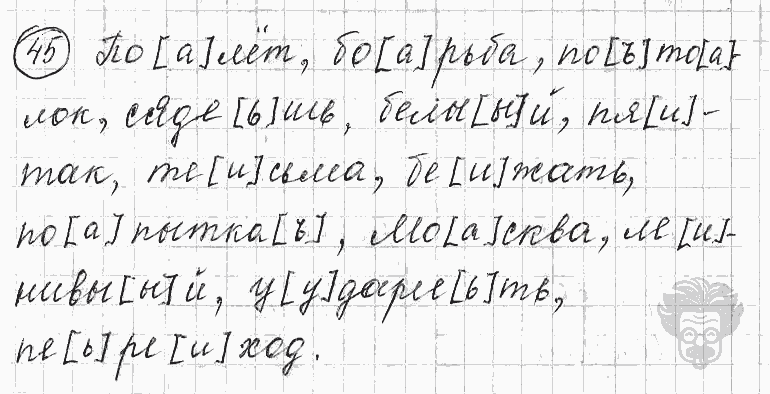 45 По[а]лёт, бо[а]рьба, по[ъ]то[а]-
лок, сяде[ь]шь, белы[ы]й, пя[и]-
так, те[и]сьма, бе[и]жать,
по[а]пытка[ъ], Мо[а]сква, ле[и]-
нивы[ы]й, у[у]даре[ь]ть,
пе[ь]ре[и]ход.